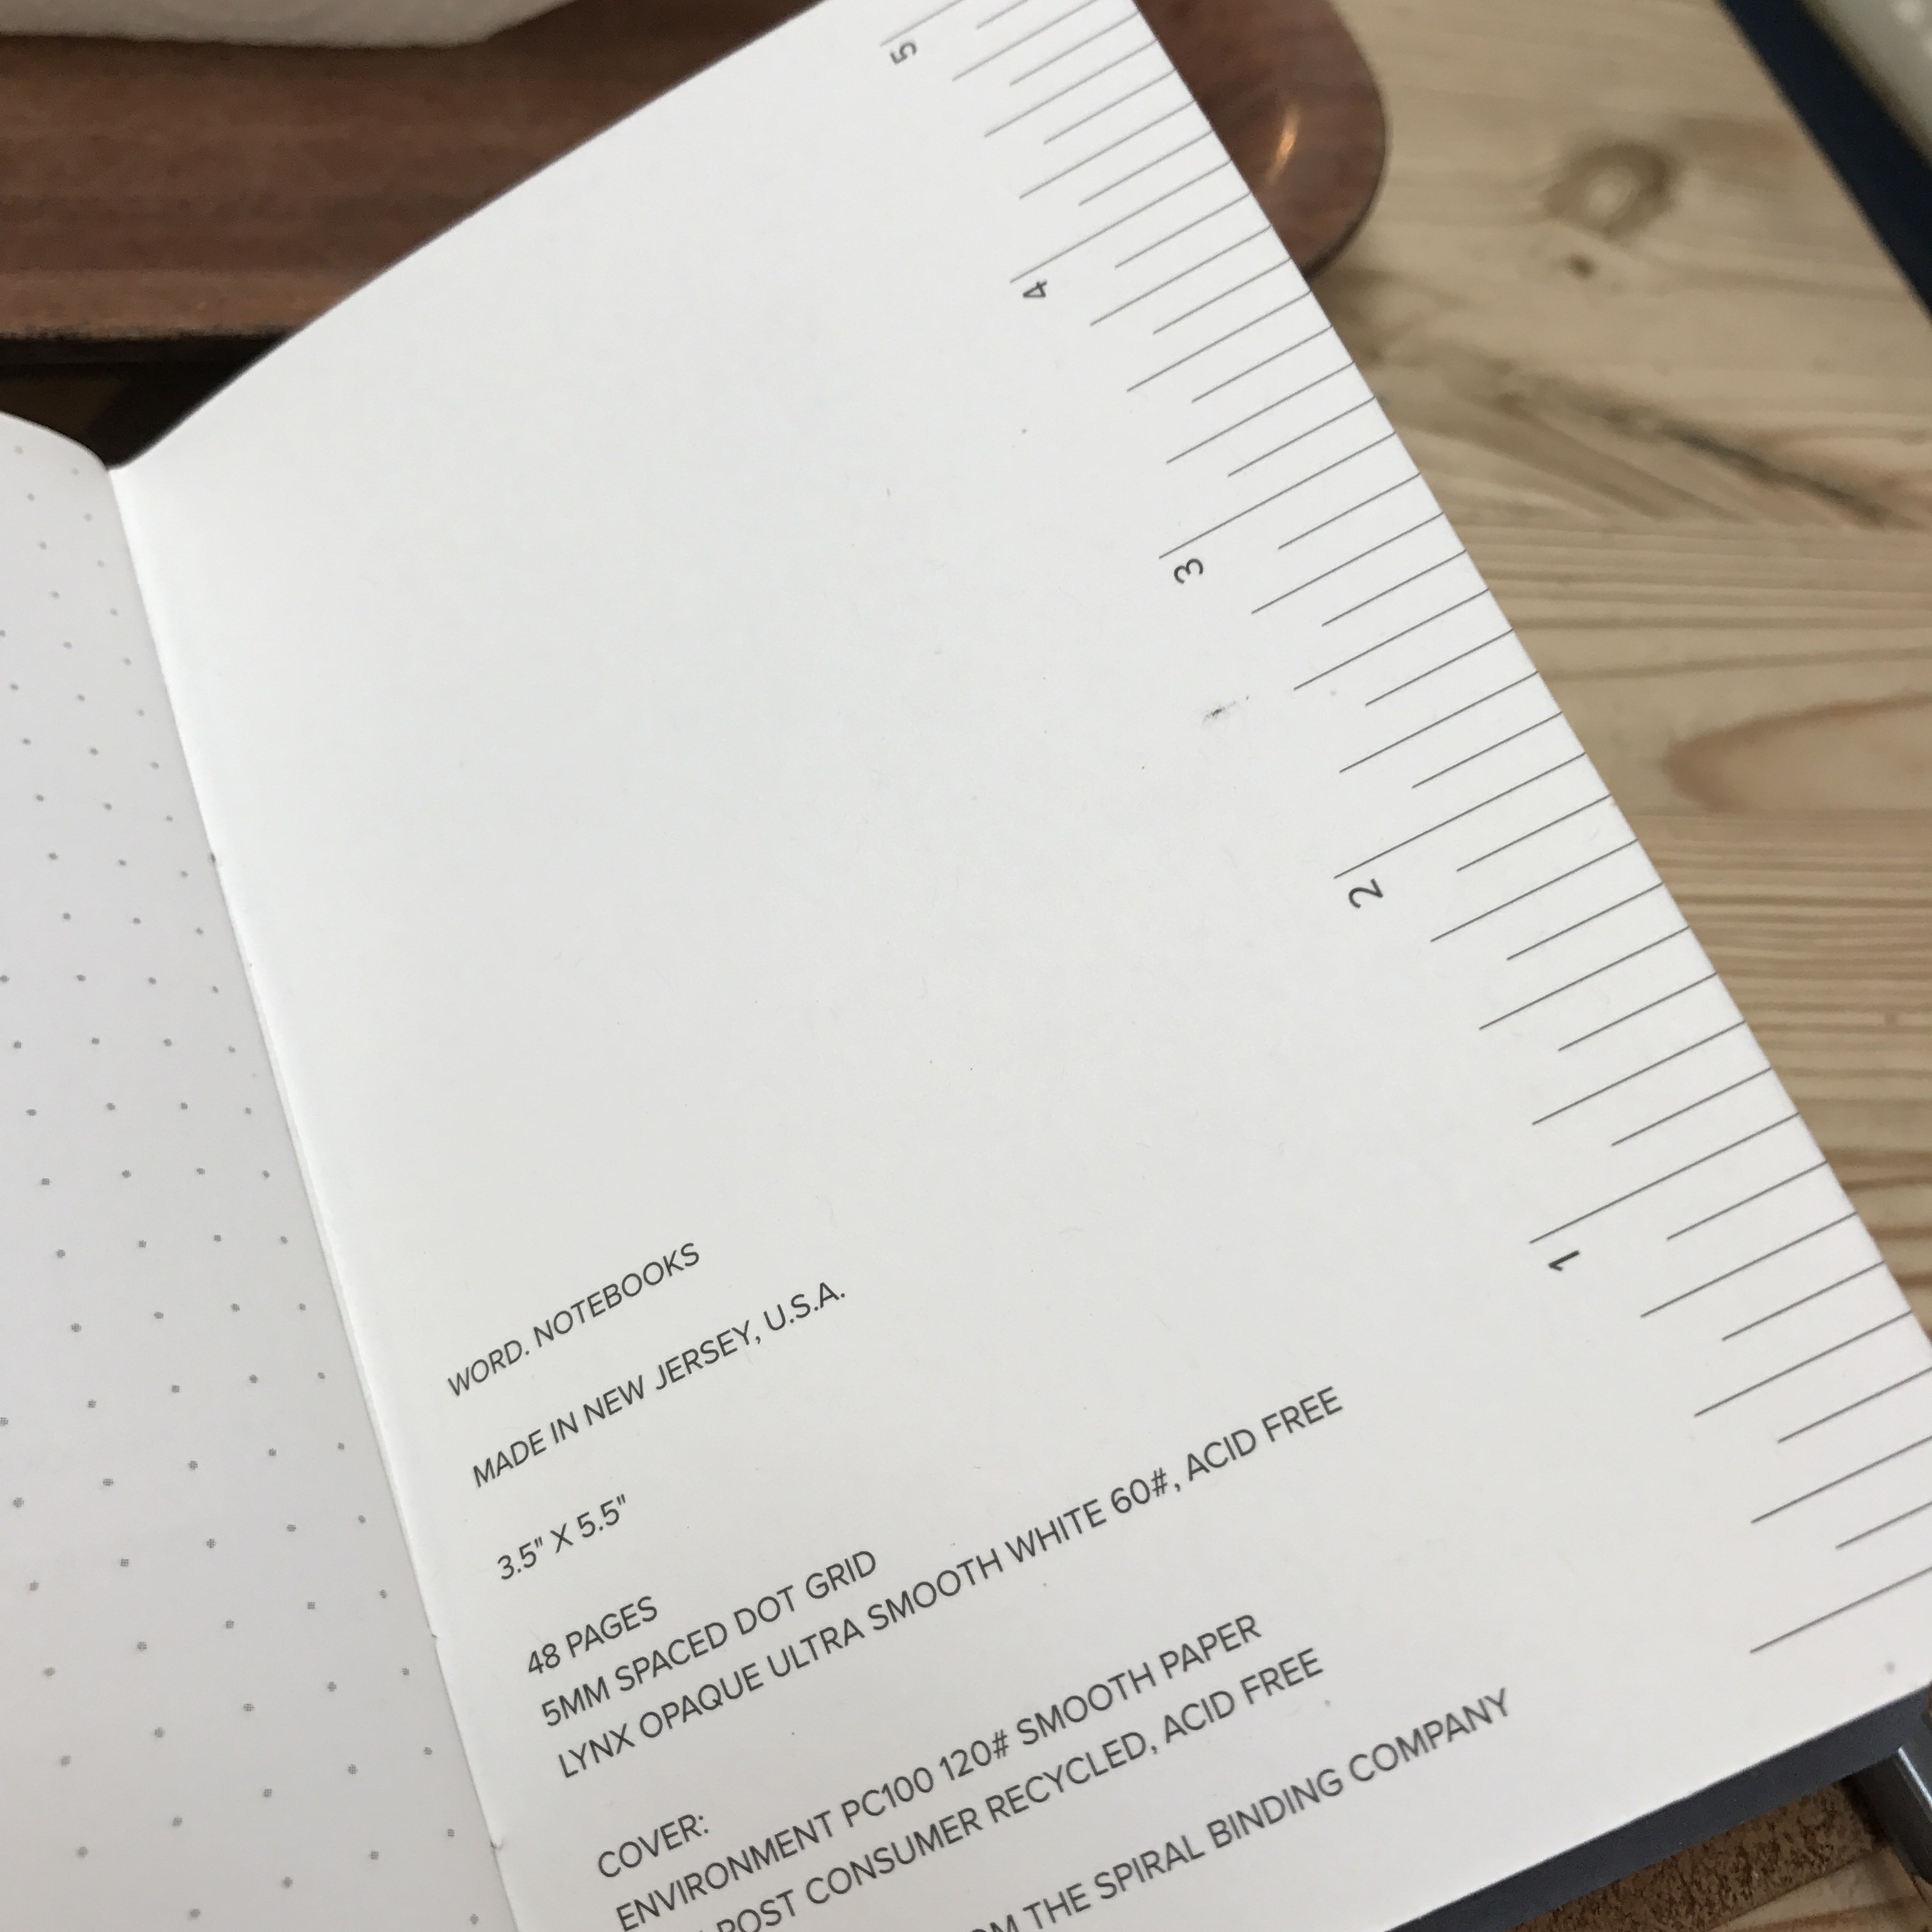 WORD. NOTEBOOKS
MADE IN NEW JERSEY, U.S.A.
3.5" X 5.5"
48 PAGES
5MM SPACED DOT GRID
LYNX OPAQUE ULTRA SMOOTH WHITE 60#, ACID FREE
COVER:
ENVIRONMENT PC100 120# SMOOTH PAPER
POST CONSUMER RECYCLED, ACID FREE
THE SPIRAL BINDING COMPANY
5
4
3
2
1